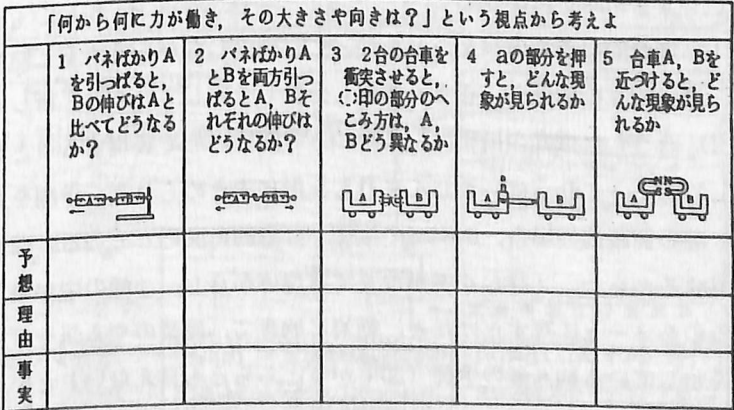 「何から何に力が働き，その大きさや向きは？」という視点から考えよ
1 バネばかりA
を引っぱると，
Bの伸びはAと
比べてどうなる
か？
2 バネばかりA
とBを両方引っ
ぱるとA，Bそ
れぞれの伸びは
どうなるか？
3 2台の台車を
衝突させると，
◌印の部分のへ
こみ方は，A，
Bどう異なるか
4 aの部分を押
すと，どんな現
象が見られるか
5 台車A，Bを
近づけると，ど
んな現象が見ら
れるか
A B
A B
A B
a
A B
N N
S S
A B
予想
理由
事実